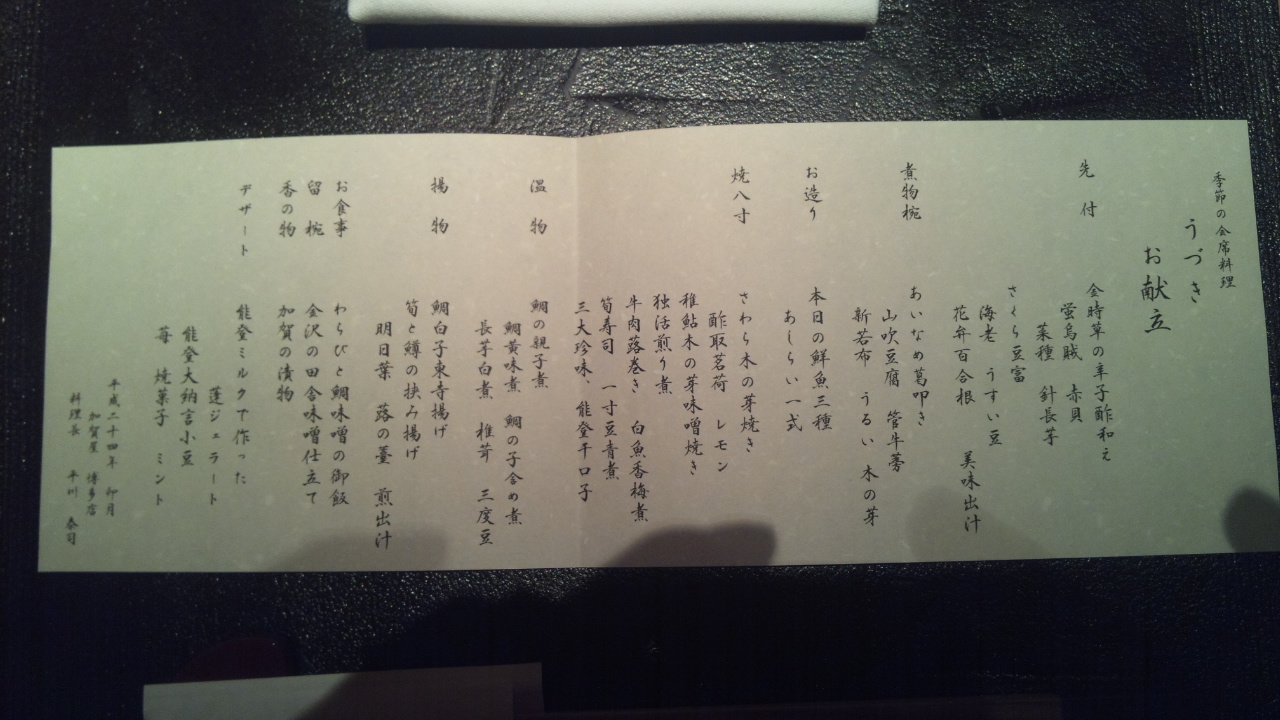 季節の会席料理
うづき
お献立
先付
金時草の辛子酢和え
蛍烏賊 赤貝
菜種 針長芋
さくら豆富
海老 うすい豆
花弁百合根 美味出汁
煮物椀
あいなめ葛叩き
山吹豆腐 管牛蒡
新若布 うるい 木の芽
お造り
本日の鮮魚三種
あしらい一式
焼八寸
さわら木の芽焼き
酢取茗荷 レモン
稚鮎木の芽味噌焼き
独活煎り煮
牛肉蕗巻き 白魚香梅煮
筍寿司 一寸豆青煮
三大珍味、能登干口子
温物
鯛の親子煮
鯛黄味煮 鯛の子含め煮
長芋白煮 椎茸 三度豆
揚物
鯛白子東寺揚げ
筍と鱒の挟み揚げ
明日葉 蕗の薹 煎出汁
お食事
わらびと鯛味噌の御飯
留椀
金沢の田舎味噌仕立て
香の物
加賀の漬物
デザート
能登ミルクで作った
蓬ジェラート
能登大納言小豆
苺 焼菓子 ミント
平成二十四年 卯月
加賀屋 博多店
料理長 平川 泰司